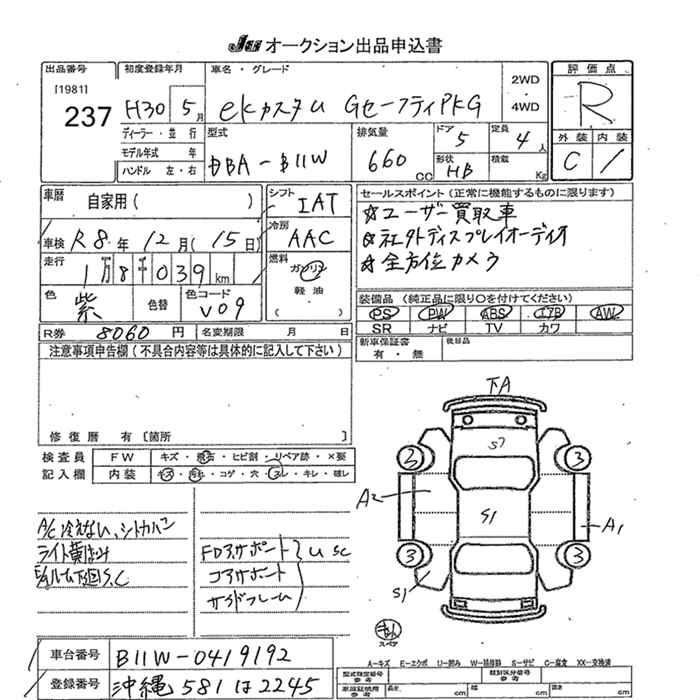 JU オークション出品申込書
出品番号
[1981]
237
初度登録年月
H30 5月
ディーラー・並行
モデル年式 年
ハンドル 左・右
車名・グレード
ekカスタム GセーフティPKG
2WD
4WD
型式
DBA-B11W
排気量
660 CC
ドア
5
定員
4人
形状
HB
積載
Kg
評価点
R
外装 内装
C /
車歴
自家用( )
車検 R8年 12月(15日)
走行
1万8千039km
色
紫
色替
色コード
V09
シフト
IAT
冷房
AAC
燃料
ガソリン
軽油
( )
セールスポイント(正常に機能するものに限ります)
☆ユーザー買取車
☆社外ディスプレイオーディオ
☆全方位カメラ
装備品(純正品に限り○を付けてください)
PS PW ABS エアB AW
SR ナビ TV カワ
新車保証書
有・無
後日品
R券 8060円
名変期限 月 日
注意事項申告欄(不具合内容等は具体的に記入して下さい)
修復歴 有[箇所 ]
検査員
記入欄
FW キズ・飛石・ヒビ割・リペア跡・×要
内装 キズ・汚れ・コゲ・穴・スレ・キレ・破レ
A/C冷えない、シートカバー
ライト黄ばみ
下回S,C
FDアサポート
コアサポート
サイドフレーム
U SC
下A
S7
2
3
A2
S1
A1
3
3
S1
スペア
A-キズ E-エクボ U-凹み W-補修跡 S-サビ C-腐食 XX-交換済
車台番号
B11W-0419192
登録番号
沖縄581は2245
型式指定番号
類別区分番号
長さ
cm
幅
cm
高さ
cm